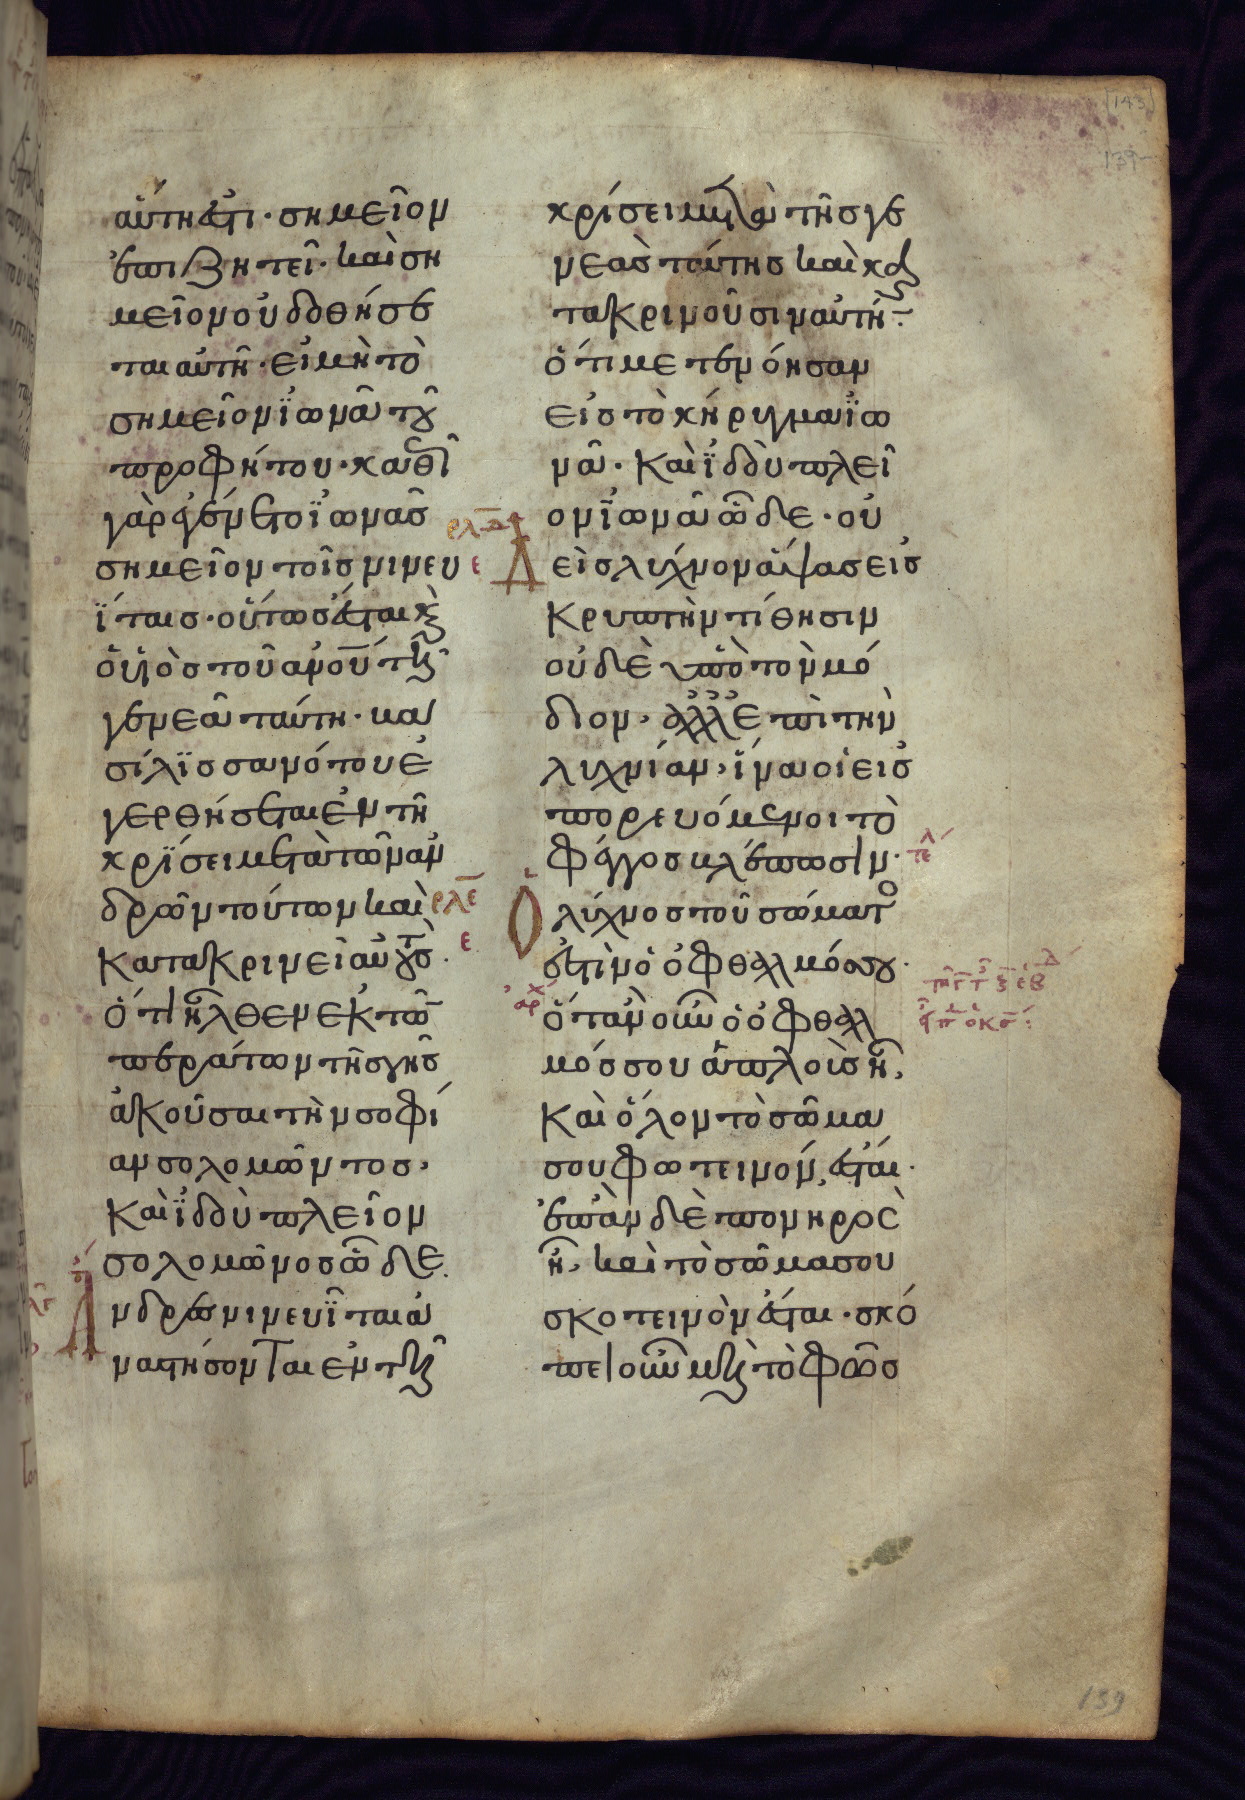 αὕτη ἐστι· σημεῖον
ἐπιζητεῖ· καὶ ση
μεῖον οὐ δοθήσε
ται αὐτῆ· εἰ μὴ τὸ
σημεῖον ϊωνᾶ τοῦ
προφήτου· καθῶ
γὰρ ἐγένετο ϊωνᾶσ
σημεῖον τοῖσ νινευ
ΐταισ· οὕτωσ ἔσται κ
ὁ υἱὸσ τοῦ ανου τῆ
γενεᾶ ταύτη· βα
σίλϊσσα νότου ἐ
γερθήσεται ἐν τῆ
κρΐσει μετὰ τῶν ἀν
δρῶν τούτων καὶ
κατακρινεῖ αὐτοὺσ·
ὅτι ἦλθεν ἐκ τῶ
περάτων τῆσ γῆσ
ἀκοῦσαι τὴν σοφί
αν σολομῶντοσ·
καὶ ϊδοὺ πλεῖον
σολομῶνοσ ὧδε.
Ανδρεσ νινευῖται ἀ
ναστήσονται ἐν τῆ
κρίσει μετὰ τῆσ γε
νεᾶσ ταύτησ καὶ κα
τακρινοῦσιν αὐτήν·
ὅτι μετενόησαν
εἰσ τὸ κήρυγμα ϊω
νᾶ· καὶ ϊδοὺ πλεῖ
ον ϊωνᾶ ὧδε· οὐ
Δεὶσ λύχνον ἅψασ εἰσ
κρυπτὴν τίθησιν
οὐδὲ ὑπὸ τὸν μό
διον· ἀλλ ἐπὶ τὴν
λυχνίαν, ἵνα οἱ εἰσ
πορευόμενοι τὸ
φέγγοσ βλέπωσιν·
Ὁ λύχνοσ τοῦ σώματο
ἐστὶν ὁ ὀφθαλμόσ σου·
ὅταν οὖν ὁ ὀφθαλ
μόσ σου ἁπλοῦσ ἦ,
καὶ ὅλον τὸ σῶμα
σου φωτεινόν, ἔσται·
ἐπὰν δὲ πονηρὸσ
ἦ, καὶ τὸ σῶμα σου
σκοτεινὸν ἔσται· σκό
πει οὖν μὴ τὸ φῶσ
139